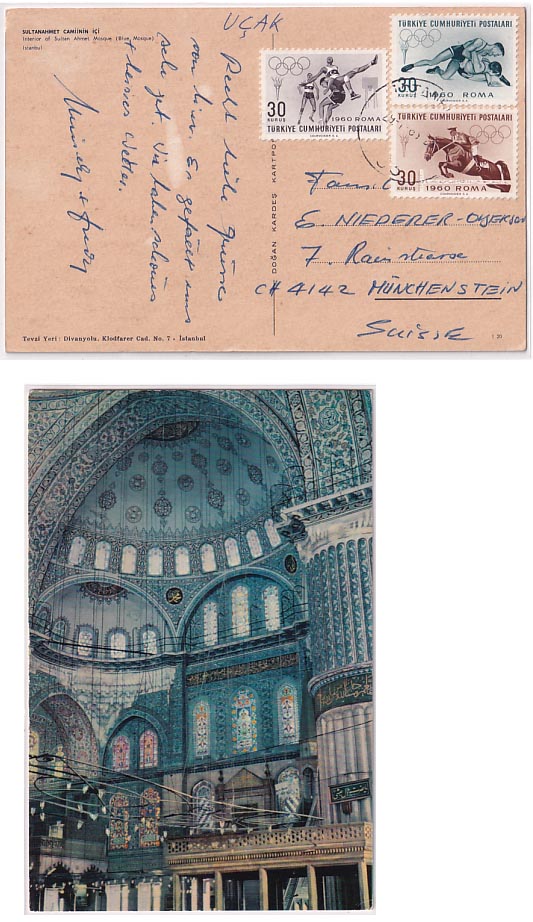 SULTANAHMET CAMİİNİN İÇİ
Interior of Sultan Ahmet Mosque (Blue Mosque)
İstanbul
UÇAK
Recht viele Grüsse
von hier. Es gefällt uns
sehr gut. Wir haben schönes
Wetter.
DOĞAN KARDEŞ KARTPO
30
KURUŞ
1960 ROMA
TÜRKİYE CUMHURİYETİ POSTALARI
TÜRKİYE CUMHURİYETİ POSTALARI
30
KURUŞ
1960 ROMA
TÜRKİYE CUMHURİYETİ POSTALARI
30
KURUŞ
1960 ROMA
E. NIEDERER-
7. Rainstrasse
CH 4142 MÜNCHENSTEIN
Suisse
Tevzi Yeri : Divanyolu, Klodfarer Cad. No. 7 - İstanbul
120